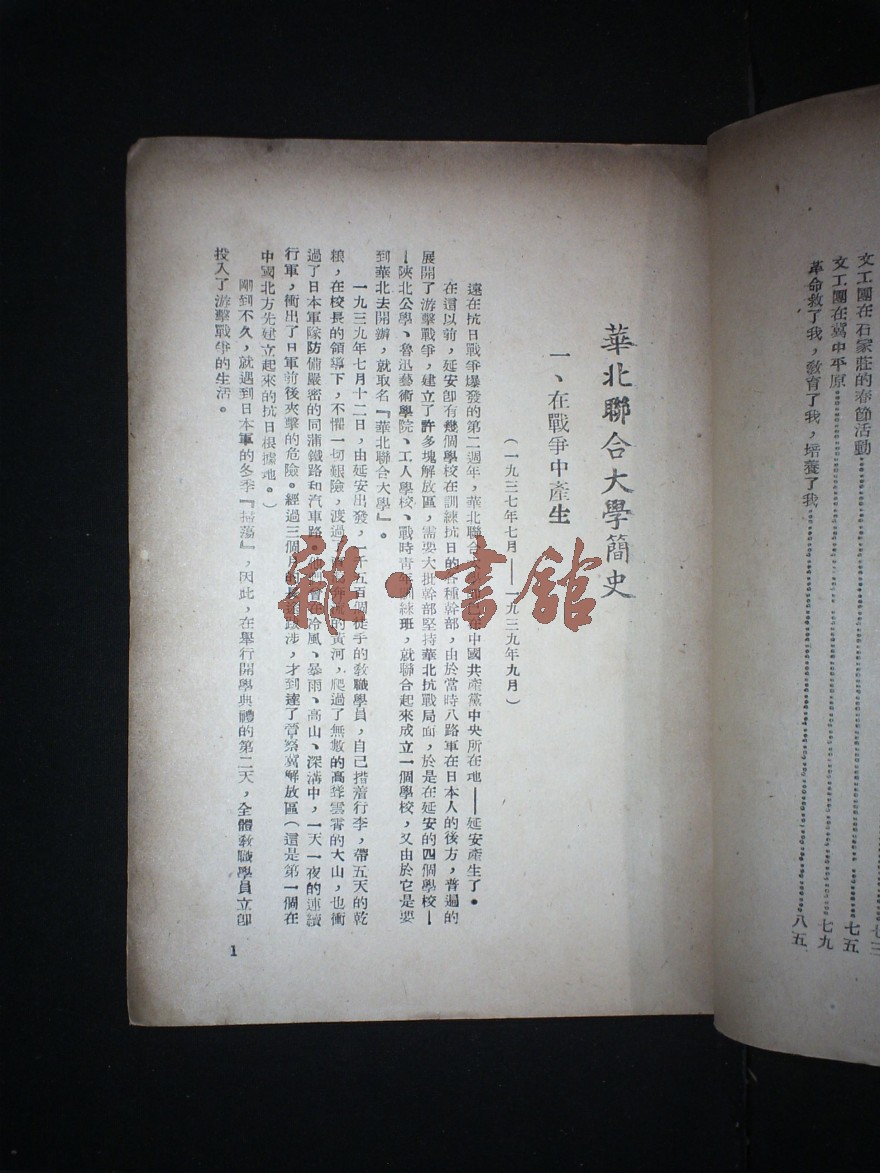 文工團在石家莊的春節活動……七三
文工團在冀中平原……七五
革命救了我,教育了我,培養了我……七九
八五
華北聯合大學簡史
一、在戰爭中產生
(一九三七年七月——一九三九年九月)
遠在抗日戰爭爆發的第二週年,華北聯合在中國共產黨中央所在地——延安產生了。
在這以前,延安卽有幾個學校在訓練抗日的各種幹部,由於當時八路軍在日本人的後方,普遍的
展開了游擊戰爭,建立了許多塊解放區,需要大批幹部堅持華北抗戰局面,於是在延安的四個學校—
—陝北公學、魯迅藝術學院、工人學校、戰時青年訓練班,就聯合起來成立一個學校,又由於它是要
到華北去開辦,就取名『華北聯合大學』。
一九三九年七月十二日,由延安出發,一千五百個徒手的敎職學員,自己揹着行李,帶五天的乾
粮,在校長的領導下,不懼一切艱險,渡過的黃河,爬過了無數的高聳雲霄的大山,也衝
過了日本軍隊防備嚴密的同蒲鐵路和汽車路。在冷風、暴雨、高山、深溝中,一天一夜的連續
行軍,衝出了日軍前後夾擊的危險。經過三個跋涉,才到達了晉察冀解放區(這是第一個在
中國北方先建立起來的抗日根據地。)
剛到不久,就遇到日本軍的冬季『掃蕩』,因此,在舉行開學典禮的第二天,全體敎職學員立卽
投入了游擊戰爭的生活。
1
雜·書館